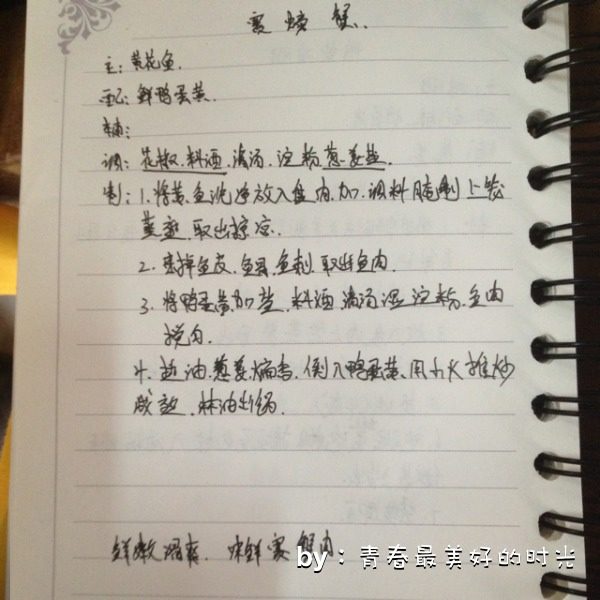 赛螃蟹.
主: 黄花鱼.
配: 鲜鸭蛋黄.
辅:
调: 花椒.料酒.清汤.淀粉.葱姜盐.
制: 1.将黄鱼洗净放入盘内.加.调料腌制上笼
蒸熟.取出晾凉.
2.去掉鱼皮.鱼骨.鱼刺.取出鱼肉.
3.将鸭蛋黄加盐.料酒.清汤湿淀粉.鱼肉
搅匀.
4.起油.葱姜.煸香.倒入鸭蛋黄.用小火推炒
成熟.淋油出锅.
鲜嫩滑.味鲜赛蟹肉
by：青春最美好的时光